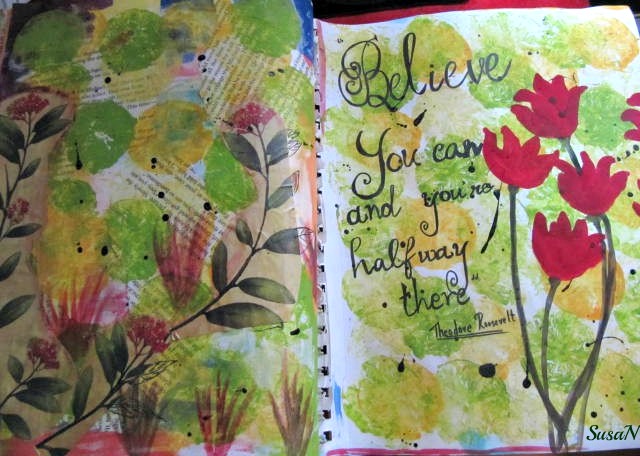 "Believe
You can
and you're
halfway
there"
Theodore Roosevelt
SusaN